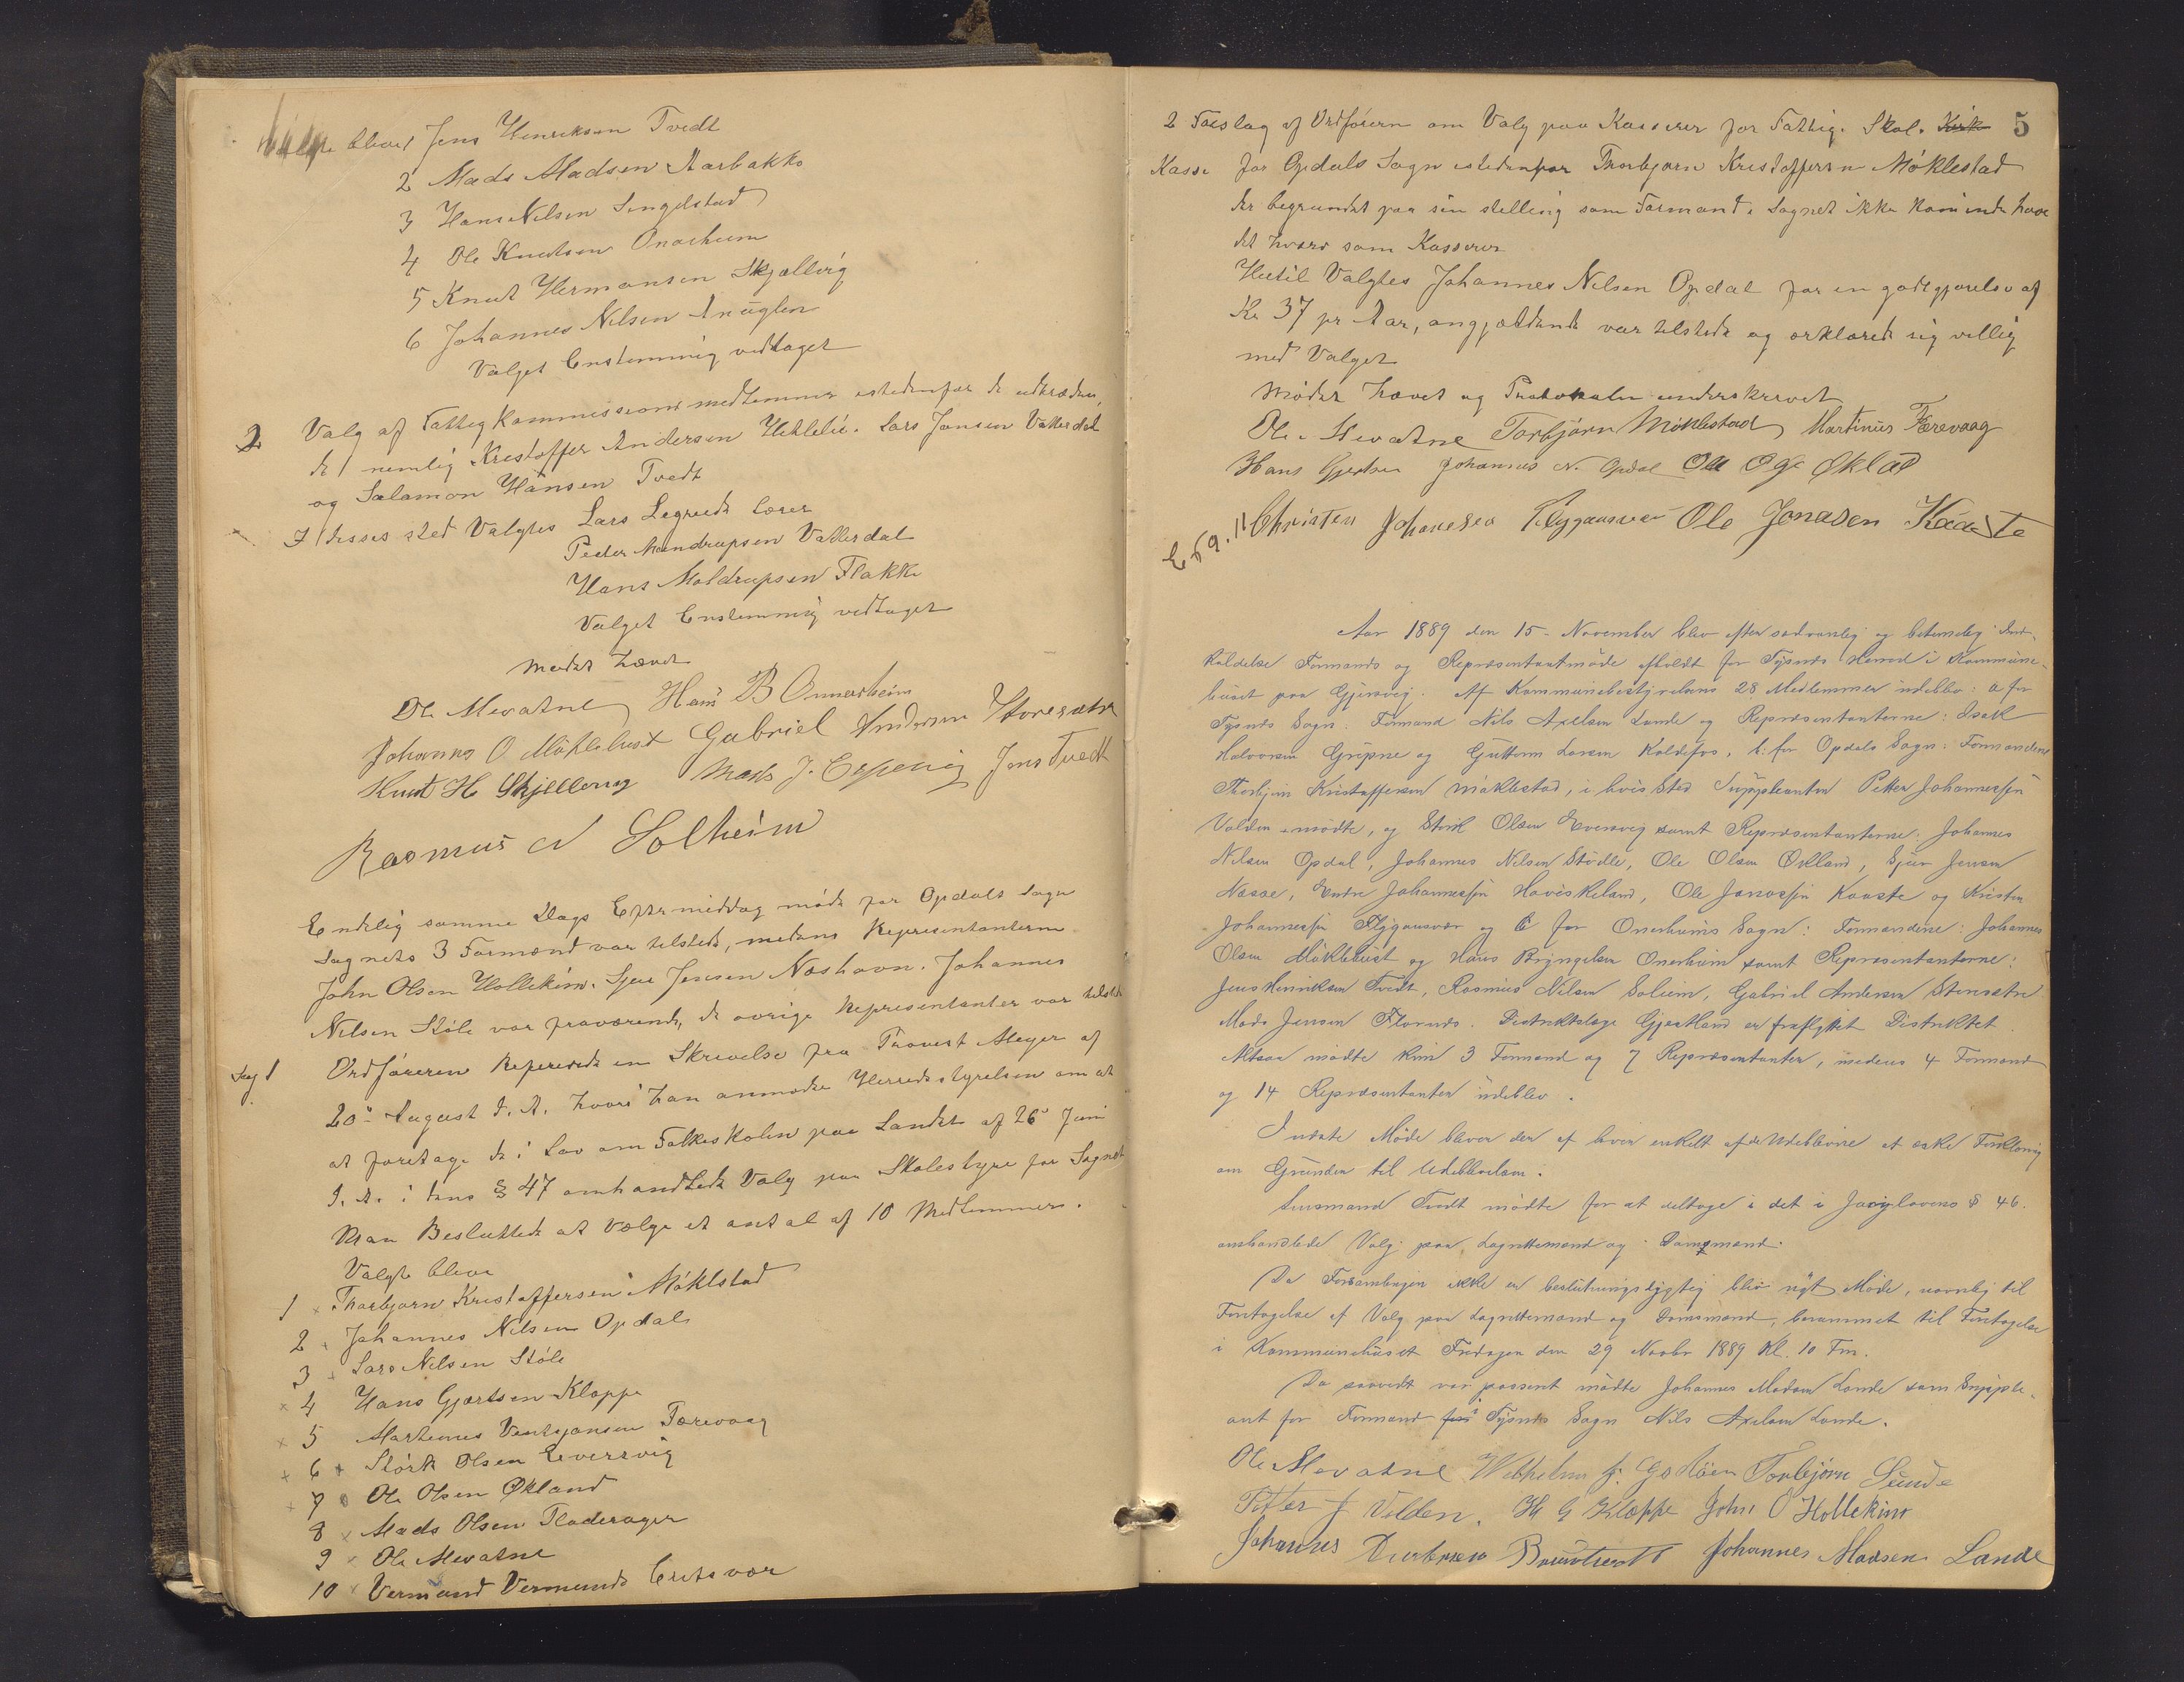 Valgte bleve Jens Henriksen Tvedt
2 Mads Madsen Aarbakke
3 Hans Nilsen Singelstad
4 Ole Knudsen Onarheim
5 Knut Hermansen Skjellvig
6 Johannes Nilsen Anuglen
Valget Enstemmig vedtaget
2 Valg af Fattigkommissions medlemmer istedenfor de udtrædende
de nemlig Kristoffer Andersen Hetleli. Lars Jansen Vattesdal
og Salamon Hansen Tvedt
I disses sted Valgtes Lars Legrede Lærer
Peder Mandrupsen Vattesdal
Hans Moldrupsen Flakke
Valget Enstemmig vedtaget
Mødet hævet
Ole Mevatne Hans B Onnarheim
Johannes O Møklebust Gabriel Andersen Storesætre
Knut H Skjellevig Mads J. Jens Tvedt
Rasmus N Solheim
Endelig samme Dags Eftermiddag møde for Opdals Sogn
Sognets 3 Formænd var tilstede, medens Representanterne
John Olsen Hollekim. Sjur Jensen Næshavn. Johannes
Nilsen Støle var fraværende, de øvrige Representanter var tilstede
Sag 1 Ordføreren Refererede en Skrivelse fra Provst Meyer af
20de August d. A. hvori han anmoder Herredsstyrelsen om at
at foretage de i Lov om Folkeskolen paa Landet af 26de Juni
d. A. i dens § 47 omhandlede Valg paa Skolestyre for Sognet
Man Besluttede at vælge et antal af 10 Medlemmer.
Valgte bleve
1 Thorbjørn Kristoffersen Møklstad
2 Johannes Nilsen Opdal
3 Lars Nilsen Støle
4 Hans Gjertsen Kloppe
5 Martinus Færevaag
6 Størk Olsen Eversvig
7 Ole Olsen Økland
8 Mads Olsen Fladerager
9 Ole Mevatne
10 Vermund Vermunds
5
2 Forslag af Ordføreren om Valg paa Kasserer for Fattig. Skol. Kirke
Kasse for Opdals Sogn istedenfor Thorbjørn Kristoffersen Møklestad
der begrundet paa sin stelling som Formand i Sognet ikke kan inde have
det hværv som Kasserer
Hertil Valgtes Johannes Nilsen Opdal for en godtgjørelse af
Kr 37 pr Aar, angjældende var tilstede og erklærede sig villig
med Valget
Mødet hævet og Protokolen underskrevet
Ole Mevatne Torbjørn Møklestad Martinus Færevaag
Hans Gjertsen Johannes N. Opdal Ole Ols Økland
Christen Johanesen Flygansvær Ole Jonasen Kaaste
Aar 1889 den 15. November blev efter sædvanlig og betimelig Ind-
kaldelse Formands og Repræsentantmøde afholdt for Tysnæs Herred i Kommune-
huset paa Gjersvig. Af Kommunebestyrelsens 28 Medlemmer udeblev: a for
Tysnæs Sogn: Formand Nils Axelsen Lande og Repræsentanterne: Isak
Halvorsen Gripne og Guttorm Larsen Kaldefos, b: for Opdals Sogn: Formændene
Thorbjørn Kristoffersen Møklestad, i hvis Sted Suppleanten Petter Johannessen
Valden mødte, og Størk Olsen Eversvig samt Repræsentanterne: Johannes
Nilsen Opdal, Johannes Nilsen Stødle, Ole Olsen Økland, Sjur Jensen
Næsøe, Endre Johannessen Haviskeland, Ole Janassen Kaaste og Kristen
Johannessen Flygansvær og C for Onerheims Sogn: Formændene: Johannes
Olsen Møklebust og Hans Brynjelsen Onerheim samt Repræsentanterne:
Jens Henriksen Tvedt, Rasmus Nilsen Soleim, Gabriel Andersen Storesætre
Mads Jensen Flornæs. Distriktslæge Gjestland er fraflyttet Distriktet.
Altsaa mødte kun 3 Formænd og 7 Repræsentanter, medens 4 Formænd
og 14 Repræsentanter udeblev.
I næste Møde bliver der af hver enkelt af de Udeblivne at æske Forklaring
om Grunden til Udeblivelsen.
Lensmand Tvedt mødte for at deltage i det i Jurylovens § 46.
omhandlede Valg paa Lagrettemænd og Domsmænd.
Da Forsamlingen ikke er beslutningsdygtig blev nyt Møde, navnlig til
Foretagelse af Valg paa Lagrettemænd og Domsmænd, berammet til Foretagelse
i Kommunehuset Fredagen den 29 Novbr 1889 Kl. 10 Fm.
Da saavidt var passeret mødte Johannes Madsen Lande som Supple-
ant for Formand for Tysnæs Sogn Nils Axelsen Lande.
Ole Mevatne Withelm Torbjørn Sunde
Petter J Valden. H G Kloppe John O Hollekim
Johannes Johannes Madsen Lande